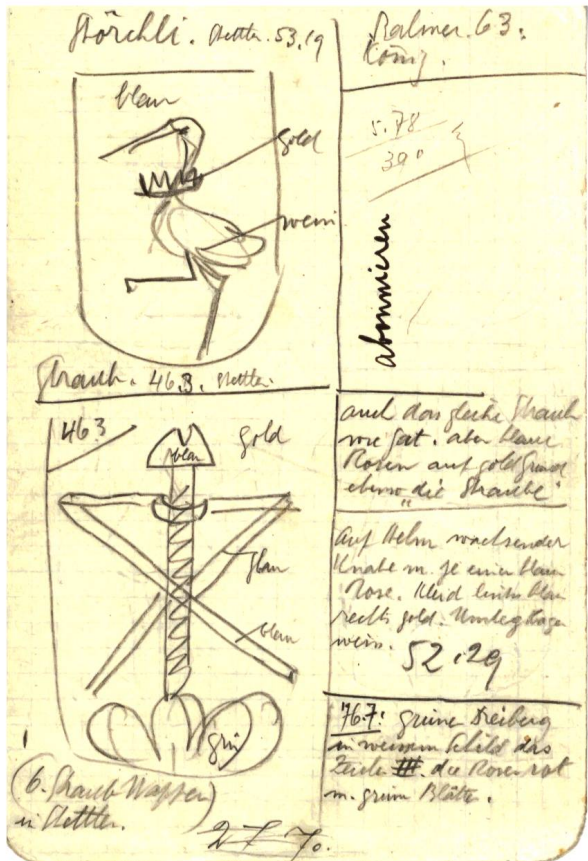 Störchli. Stettler. 53.19
blau
gold
weiss
Straub. 463. Stettler.
463
gold
blau
blau
blau
grün
(6. Straub Wappen)
in Stettler.
König.
5.78
390
abonnieren
auch das gleiche Straub
aber blaue
Rosen auf goldgrund
ebenso "die Straube"
Auf Helm wachsender
Knabe m. je einer blau
Rose. Kleid links blau
rechts gold. Umlegkragen
weiss.
52.29
76.7: grüne Dreiberg
in weissem Schild das
Zeichen die Rosen rot
m. grün Blätter.